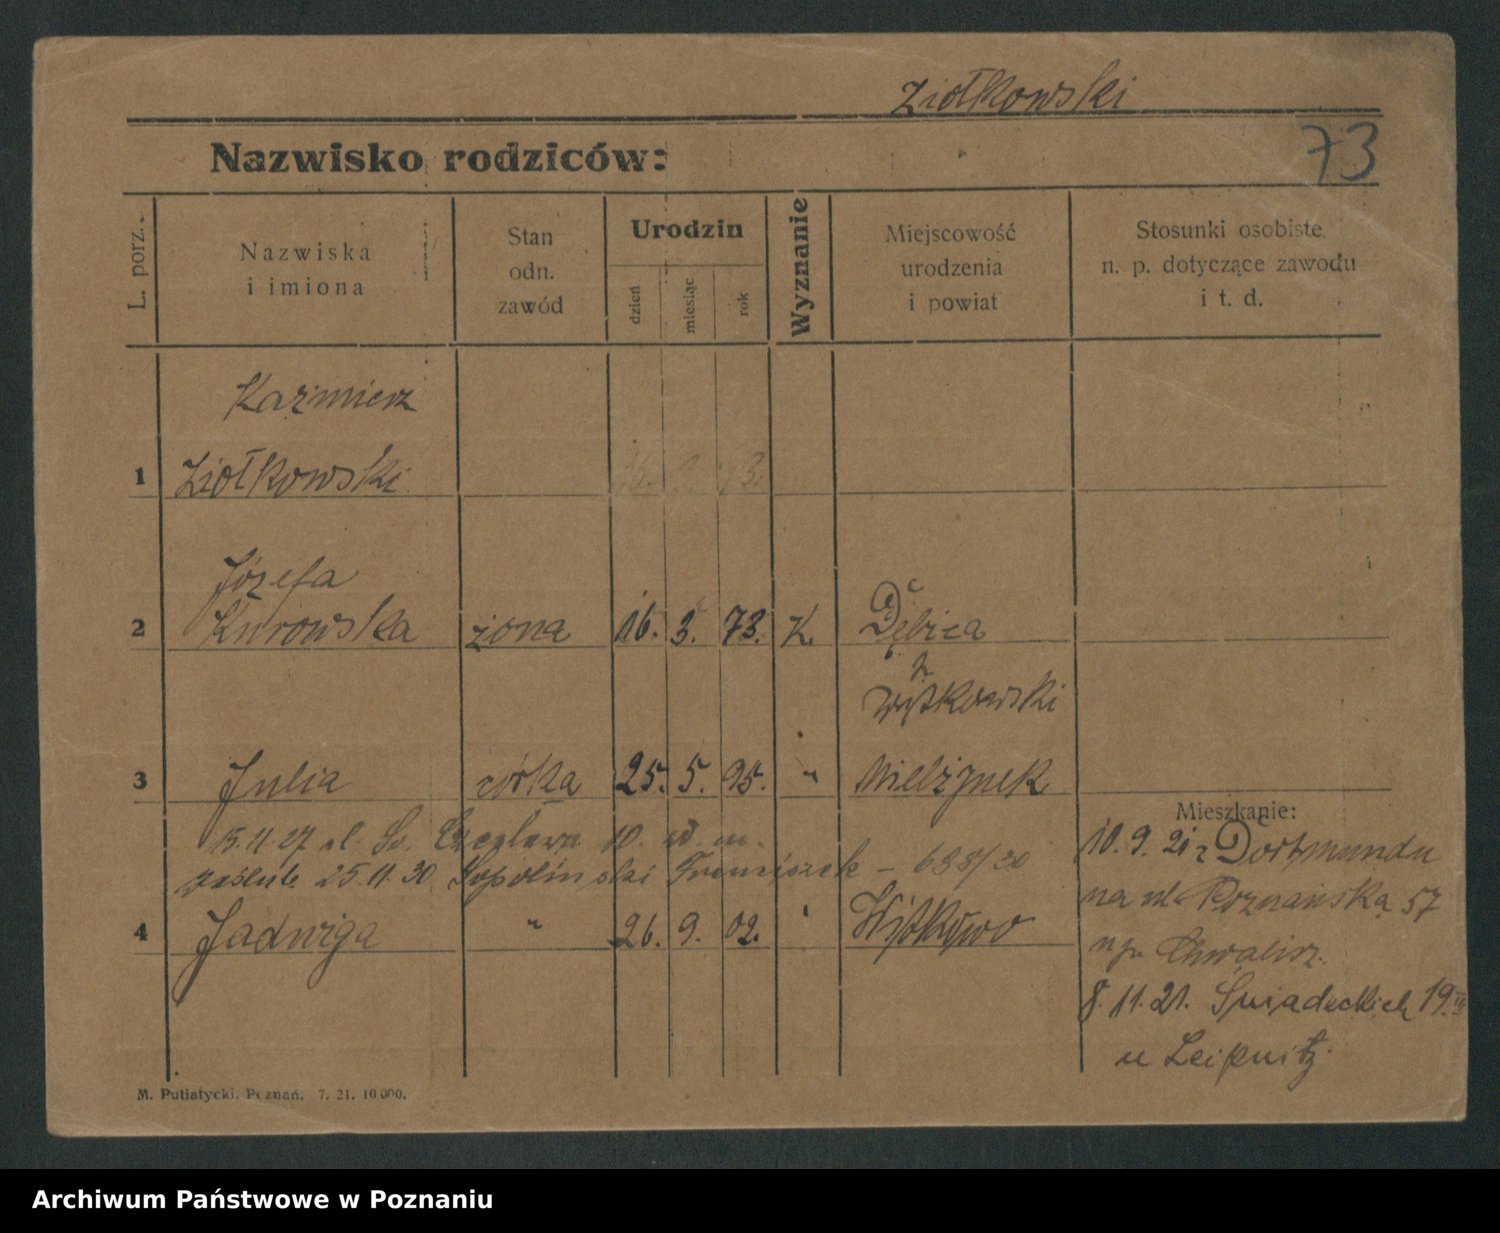 Ziołkowski
73
Nazwisko rodziców:
L. porz.
Nazwiska
i imiona
Stan
odn.
zawód
Urodzin
dzień
miesiąc
rok
Wyznanie
Miejscowość
urodzenia
i powiat
Stosunki osobiste,
n. p. dotyczące zawodu
i t. d.
Kazmierz
1 Ziołkowski 16. 3. 73.
Józefa
2 Kurowska żona 16. 3. 73. K. Dębica
Witkowski
3 Julia córka 25. 5. 95. " Mielżynek
Mieszkanie:
15.11.27 ul. Św. Czesława 10.
10. 9. 21 z Dortmundu
zaślub. 25.11.30 Franciszek – 688/30
na ul. Poznańska 57
4 Jadwiga " 26. 9. 02. " Witkowo
Chwalisz.
8. 11. 21. Śniadeckich 19. III
u Leipnitz.
M. Putiatycki. Poznań. 7. 21. 10 000.
Archiwum Państwowe w Poznaniu